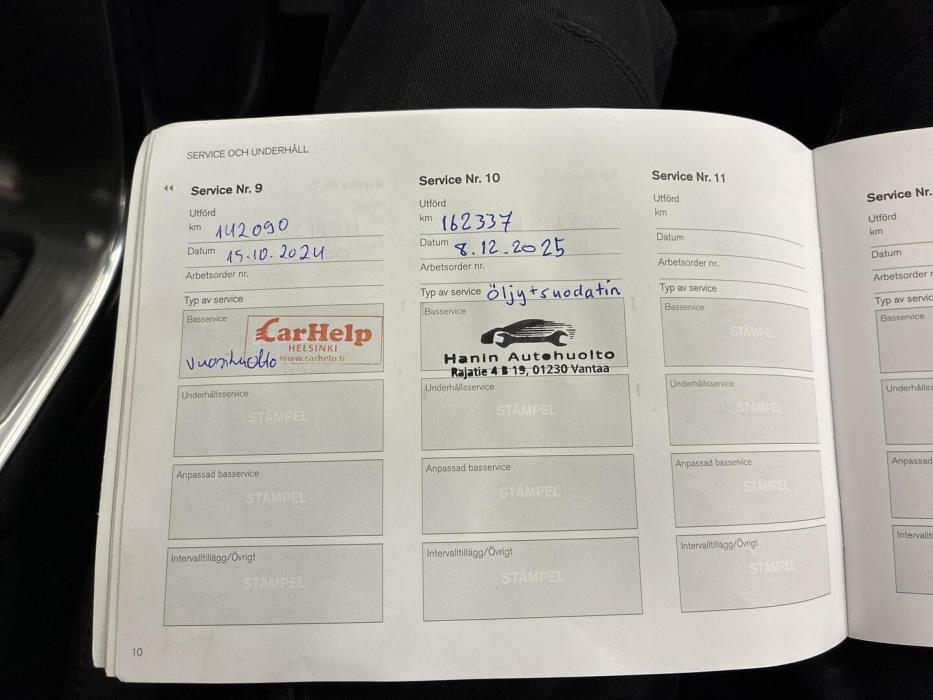 SERVICE OCH UNDERHÅLL
Service Nr. 9
Utförd
km 142090
Datum 15.10.2024
Arbetsorder nr.
Typ av service
Basservice
CarHelp
HELSINKI
www.carhelp.fi
vuosihuolto
Underhållsservice
STÄMPEL
Anpassad basservice
STÄMPEL
Intervalltillägg/Övrigt
STÄMPEL
10
Service Nr. 10
Utförd
km 162337
Datum 8.12.2025
Arbetsorder nr.
Typ av service öljy+suodatin
Basservice
Hanin Autohuolto
Rajatie 4 B 19, 01230 Vantaa
Underhållsservice
STÄMPEL
Anpassad basservice
STÄMPEL
Intervalltillägg/Övrigt
STÄMPEL
Service Nr. 11
Utförd
km
Datum
Arbetsorder nr.
Typ av service
Basservice
STÄMPEL
Underhållsservice
STÄMPEL
Anpassad basservice
STÄMPEL
Intervalltillägg/Övrigt
STÄMPEL
Service Nr.
Utförd
km
Datum
Arbetsorder
Typ av
Basservice
Anpassad